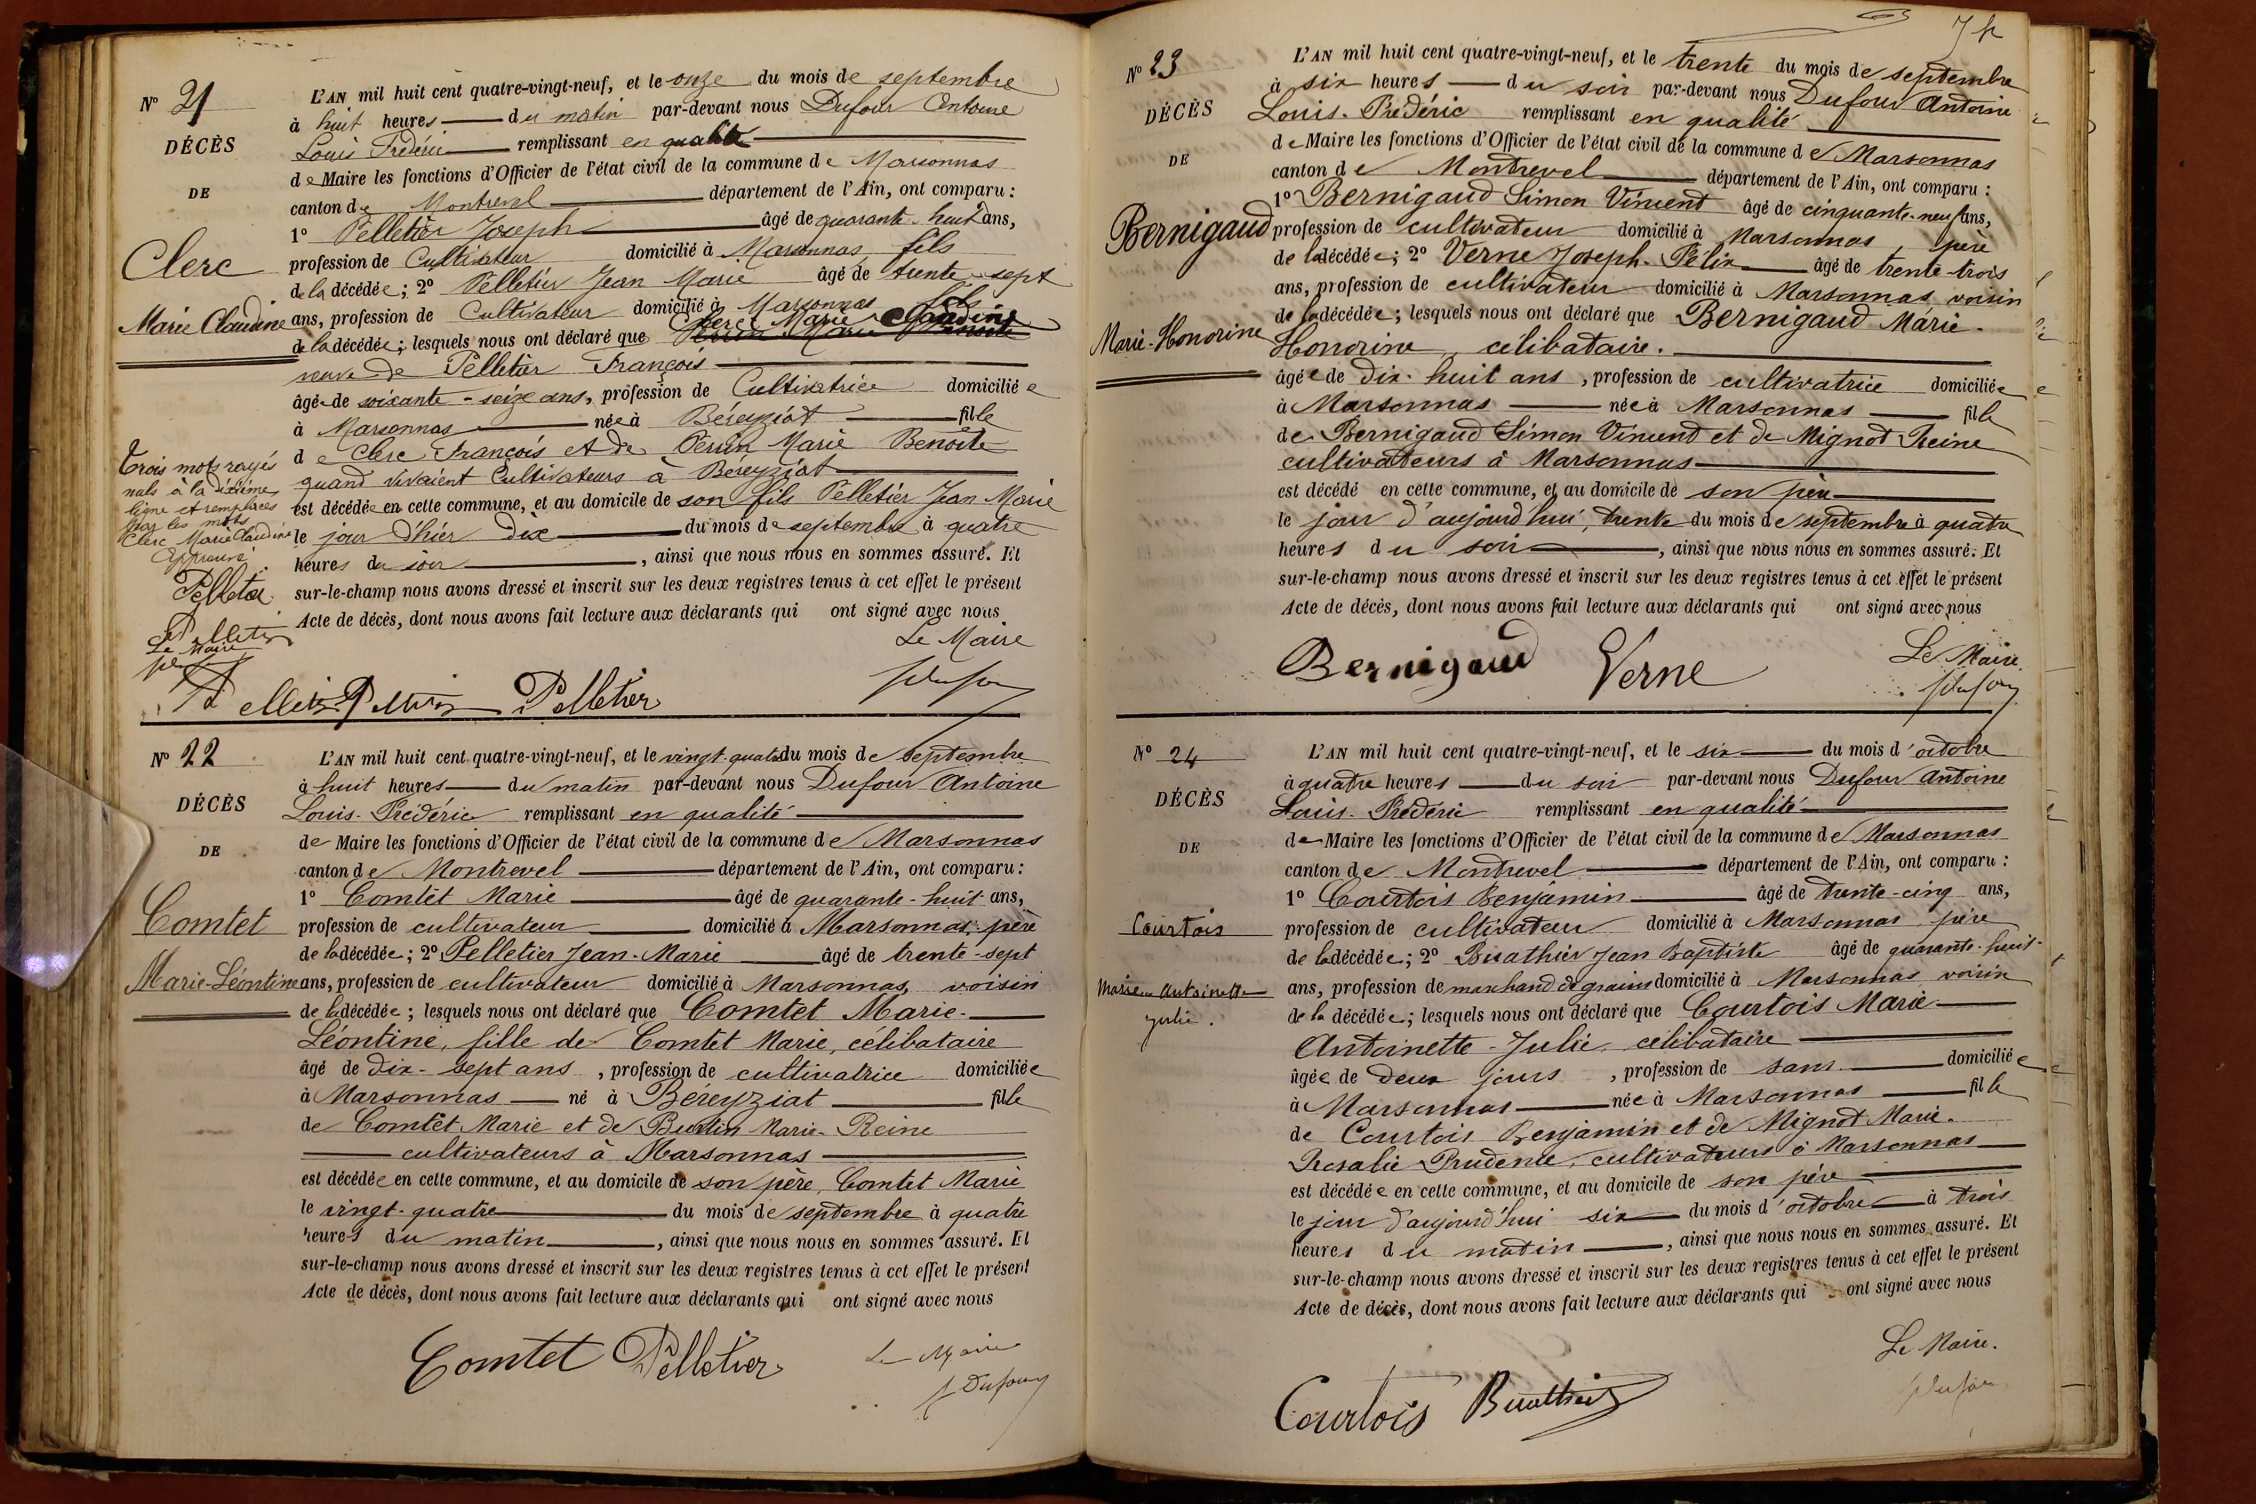 N° 21
DÉCÈS
DE
Clerc
Marie Claudine
Trois mots rayés
nuls à la dixième
ligne et remplacés
par les mots
Clerc Marie Claudine
Approuvé
Pelletier
Pelletier
Le Maire
L'AN mil huit cent quatre-vingt-neuf, et le onze du mois de septembre
à huit heures du matin par-devant nous Dufour Antoine
Louis Frédéric remplissant en qualité
de Maire les fonctions d'Officier de l'état civil de la commune de Marsonnas
canton de Montrevel département de l'Ain, ont comparu :
1° Pelletier Joseph âgé de quarante-huit ans,
profession de Cultivateur domicilié à Marsonnas, fils
de la décédée ; 2° Pelletier Jean Marie âgé de trente-sept
ans, profession de Cultivateur domicilié à Marsonnas fils
de la décédée ; lesquels nous ont déclaré que Clerc Marie Claudine
veuve de Pelletier François
âgée de soixante-seize ans, profession de Cultivatrice domiciliée
à Marsonnas née à Béreyziat fille
de Clerc François et de Perrin Marie Benoite
quand vivaient Cultivateurs à Béreyziat
est décédée en cette commune, et au domicile de son fils Pelletier Jean Marie
le jour d'hier dix du mois de septembre à quatre
heures du soir, ainsi que nous nous en sommes assuré. Et
sur-le-champ nous avons dressé et inscrit sur les deux registres tenus à cet effet le présent
Acte de décès, dont nous avons fait lecture aux déclarants qui ont signé avec nous
Le Maire
Pelletier Pelletier Dufour
N° 22
DÉCÈS
DE
Comtet
Marie-Léontine
L'AN mil huit cent quatre-vingt-neuf, et le vingt-quatre du mois de septembre
à huit heures du matin par-devant nous Dufour Antoine
Louis-Frédéric remplissant en qualité
de Maire les fonctions d'Officier de l'état civil de la commune de Marsonnas
canton de Montrevel département de l'Ain, ont comparu :
1° Comtet Marie âgé de quarante-huit ans,
profession de cultivateur domicilié à Marsonnas, père
de la décédée ; 2° Pelletier Jean-Marie âgé de trente-sept
ans, profession de cultivateur domicilié à Marsonnas, voisin
de la décédée ; lesquels nous ont déclaré que Comtet Marie-
Léontine, fille de Comtet Marie, célibataire
âgé de dix-sept ans, profession de cultivatrice domiciliée
à Marsonnas né à Béreyziat fille
de Comtet Marie et de Burtin Marie-Reine
cultivateurs à Marsonnas
est décédée en cette commune, et au domicile de son père, Comtet Marie
le vingt-quatre du mois de septembre à quatre
heures du matin, ainsi que nous nous en sommes assuré. Et
sur-le-champ nous avons dressé et inscrit sur les deux registres tenus à cet effet le présent
Acte de décès, dont nous avons fait lecture aux déclarants qui ont signé avec nous
Comtet Pelletier Le Maire
Dufour
N° 23
DÉCÈS
DE
Bernigaud
Marie-Honorine
L'AN mil huit cent quatre-vingt-neuf, et le trente du mois de septembre
à six heures du soir par-devant nous Dufour Antoine
Louis-Frédéric remplissant en qualité
de Maire les fonctions d'Officier de l'état civil de la commune de Marsonnas
canton de Montrevel département de l'Ain, ont comparu :
1° Bernigaud Simon Vincent âgé de cinquante-neuf ans,
profession de cultivateur domicilié à Marsonnas, père
de la décédée ; 2° Verne Joseph-Félix âgé de trente-trois
ans, profession de cultivateur domicilié à Marsonnas voisin
de la décédée ; lesquels nous ont déclaré que Bernigaud Marie-
Honorine, célibataire.
âgée de dix-huit ans, profession de cultivatrice domiciliée
à Marsonnas née à Marsonnas fille
de Bernigaud Simon Vincent et de Mignot Reine
cultivateurs à Marsonnas
est décédé en cette commune, et au domicile de son père
le jour d'aujourd'hui, trente du mois de septembre à quatre
heures du soir, ainsi que nous nous en sommes assuré. Et
sur-le-champ nous avons dressé et inscrit sur les deux registres tenus à cet effet le présent
Acte de décès, dont nous avons fait lecture aux déclarants qui ont signé avec nous
Bernigaud Verne Le Maire
Dufour
N° 24
DÉCÈS
DE
Courtois
Marie Antoinette
Julie.
L'AN mil huit cent quatre-vingt-neuf, et le six du mois d'octobre
à quatre heures du soir par-devant nous Dufour Antoine
Louis-Frédéric remplissant en qualité
de Maire les fonctions d'Officier de l'état civil de la commune de Marsonnas
canton de Montrevel département de l'Ain, ont comparu :
1° Courtois Benjamin âgé de trente-cinq ans,
profession de cultivateur domicilié à Marsonnas père
de la décédée ; 2° Buathier Jean Baptiste âgé de quarante-huit
ans, profession de marchand de grains domicilié à Marsonnas voisin
de la décédée ; lesquels nous ont déclaré que Courtois Marie
Antoinette-Julie, célibataire
âgée de deux jours, profession de sans domiciliée
à Marsonnas née à Marsonnas fille
de Courtois Benjamin et de Mignot Marie-
Rosalie Prudence, cultivateurs à Marsonnas
est décédée en cette commune, et au domicile de son père
le jour d'aujourd'hui six du mois d'octobre à trois
heures du matin, ainsi que nous nous en sommes assuré. Et
sur-le-champ nous avons dressé et inscrit sur les deux registres tenus à cet effet le présent
Acte de décès, dont nous avons fait lecture aux déclarants qui ont signé avec nous
Le Maire.
Courtois Buathier Dufour